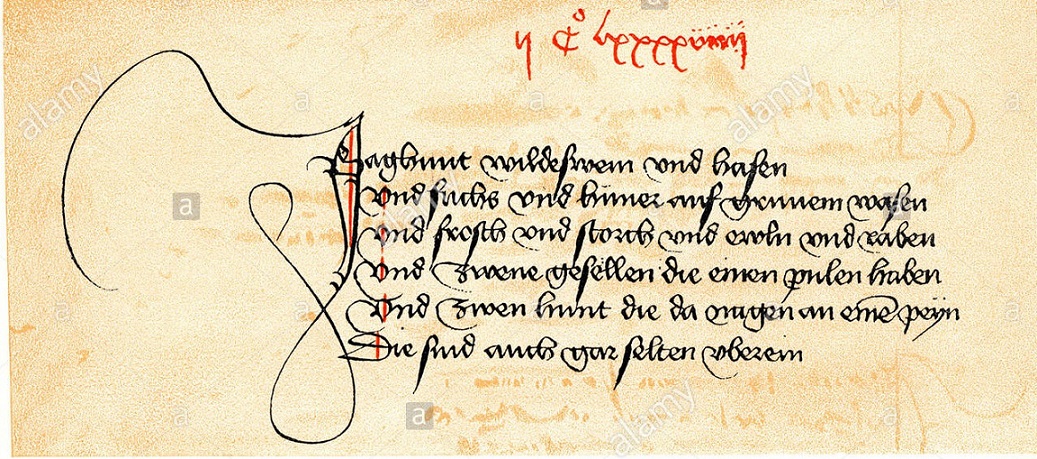 ij Co lxxxxviiij
Jaghunt wildeswein vnd hasen
Vnd fuchs vnd hüner auf grunem wasen
Vnd frosch vnd storch vnd ewln vnd raben
Vnd Zwene gesellen die einen pulen haben
Vnd Zwen hunt die da nagen an einē peyn
Die sind auch gar selten vberein
alamy
alamy
alamy
alamy